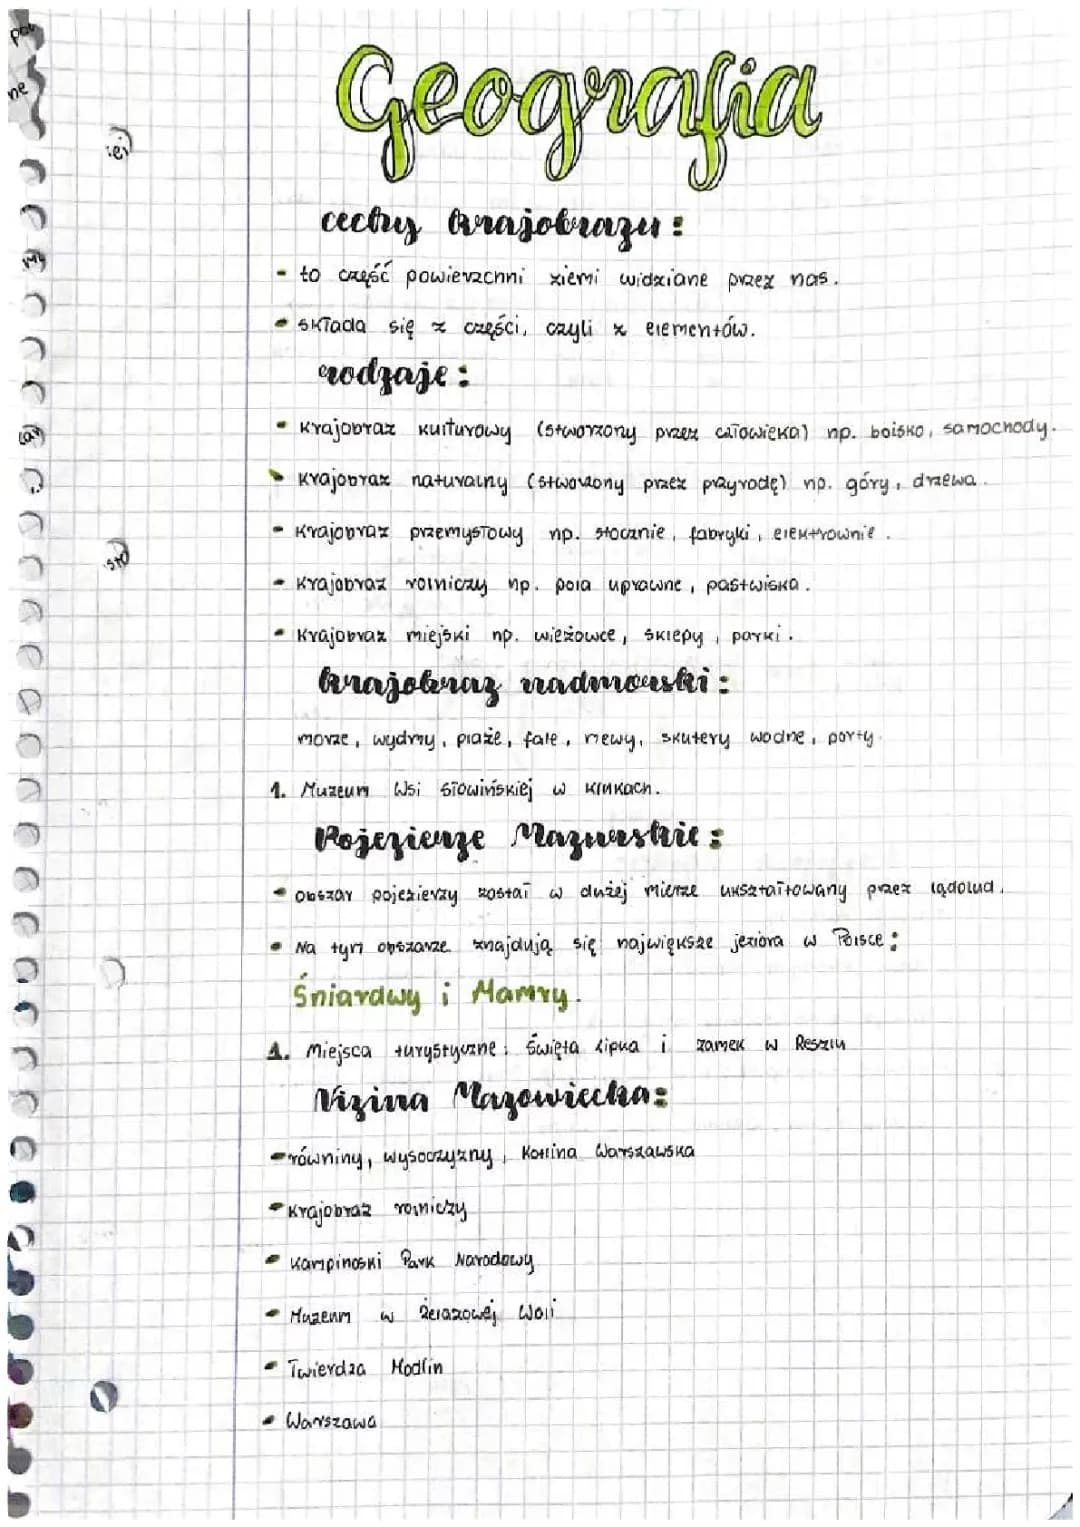 Geografia
cechy krajobrazu:
- to część powierzchni ziemi widziane przez nas.
- składa się z części, czyli z elementów.
rodzaje:
- krajobraz kulturowy (stworzony przez człowieka) np. boisko, samochody.
- krajobraz naturalny (stworzony przez przyrodę) np. góry, drzewa.
- krajobraz przemysłowy np. stocznie, fabryki, elektrownie.
- krajobraz rolniczy np. pola uprawne, pastwiska.
- krajobraz miejski np. wieżowce, sklepy, parki.
krajobraz nadmorski:
morze, wydmy, plaże, fale, mewy, skutery wodne, porty.
1. Muzeum Wsi Słowińskiej w Klukach.
Pojezierze Mazurskie:
- obszar pojezierzy został w dużej mierze ukształtowany przez lądolud.
- Na tym obszarze znajdują się największe jeziora w Polsce:
Śniardwy i Mamry.
1. Miejsca turystyczne: Święta Lipka i zamek w Reszlu
Nizina Mazowiecka:
- równiny, wysoczyzny, Kotlina Warszawska
- krajobraz rolniczy
- Kampinoski Park Narodowy
- Muzeum w Żelazowej Woli
- Twierdza Modlin
- Warszawa